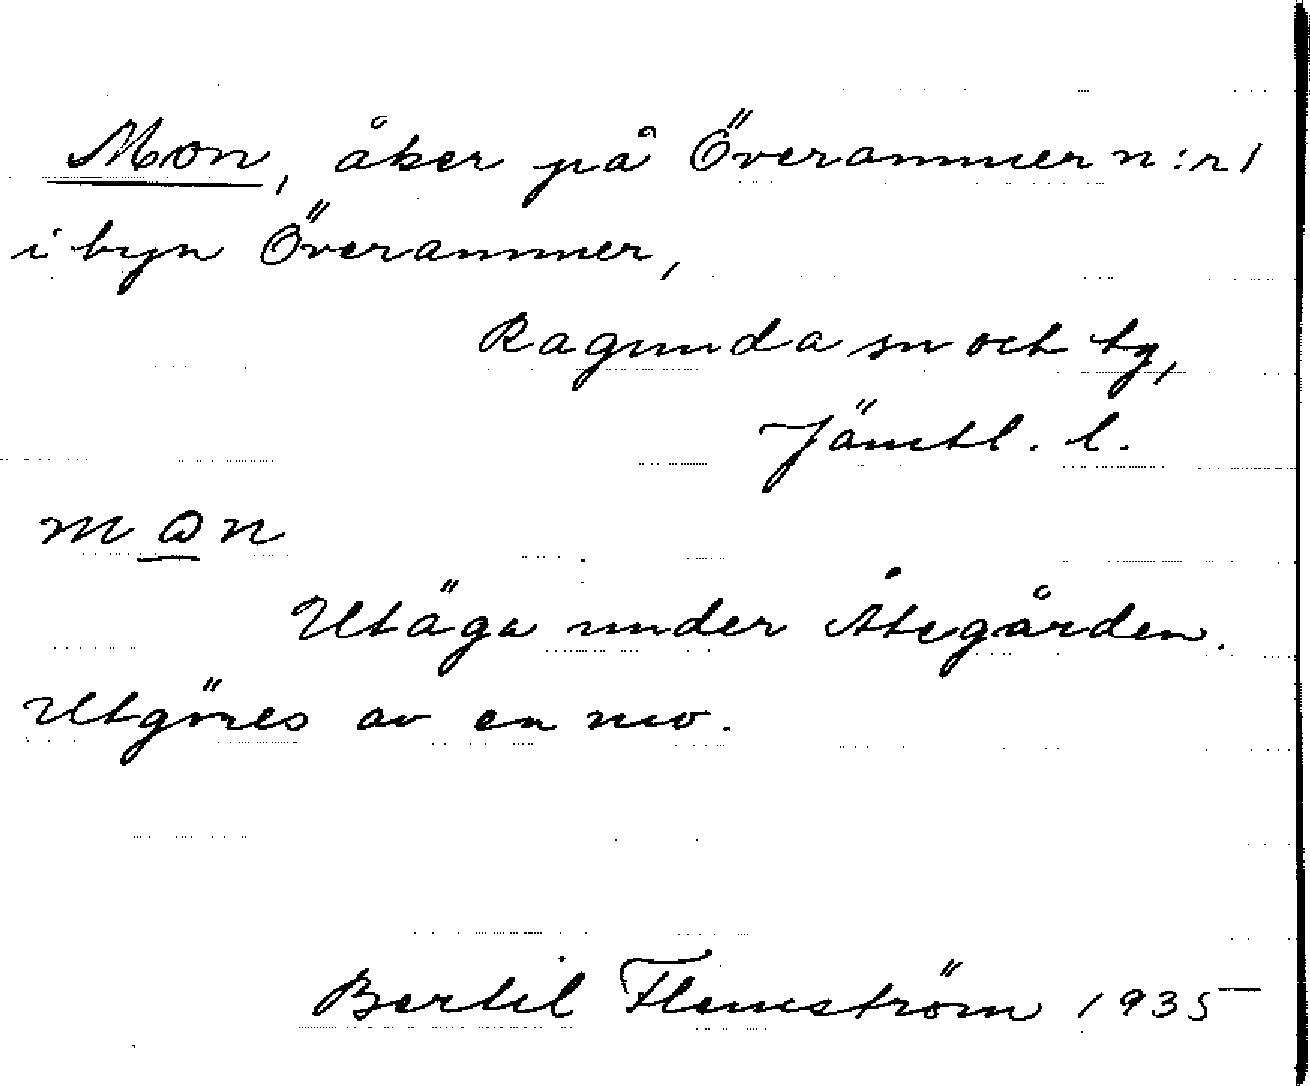 Mon, åker på Överammer n:r 1
i byn Överammer,
Ragunda sn och tg,
Jämtl. l.
Utäga under Åtegården.
Utgöres av en mo.
Bertil Flemström 1935